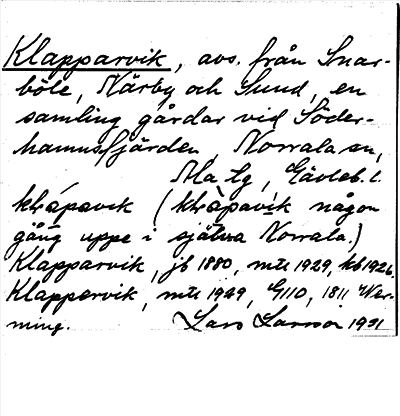 Klapparvik, avs. från Snar-
böle, Närby och Sund, en
samling gårdar vid Söder-
hamnsfjärden, Norrala sn,
Ala tg, Gävleb. l.
klápavik (klàpavik någon
gång uppe i själva Norrala.)
Klapparvik, jb 1880, mtl 1929, kb 1926.
Klappervik, mtl 1929, G110, 1811 Wer-
ning. Lars Larsson 1931